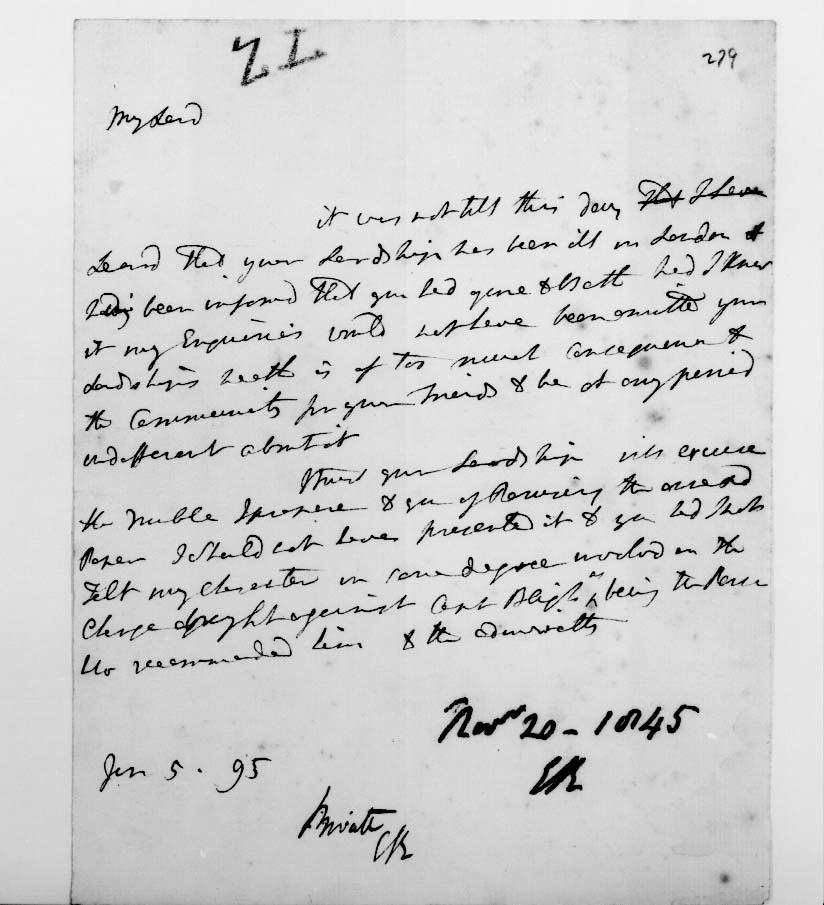 ZI
279
My Lord
it was not till this day That I have
Learnd that your Lordship has been ill in London &
having been informd that you had gone to Bath had I known
it my Enquiries would not have been omitted your
Lordships health is of too much consequence to
the Community for your Friends to be at any period
indifferent about it
I trust your Lordship will excuse
the trouble I propose to you of Perusing the
Paper I should not have presented it to you had I not
Felt my character in some degree involvd in the
charge brought against Capt Bligh as being the Person
who recommended him to the admiralty
Novr 20 - 1845
Jan 5 . 95
Private